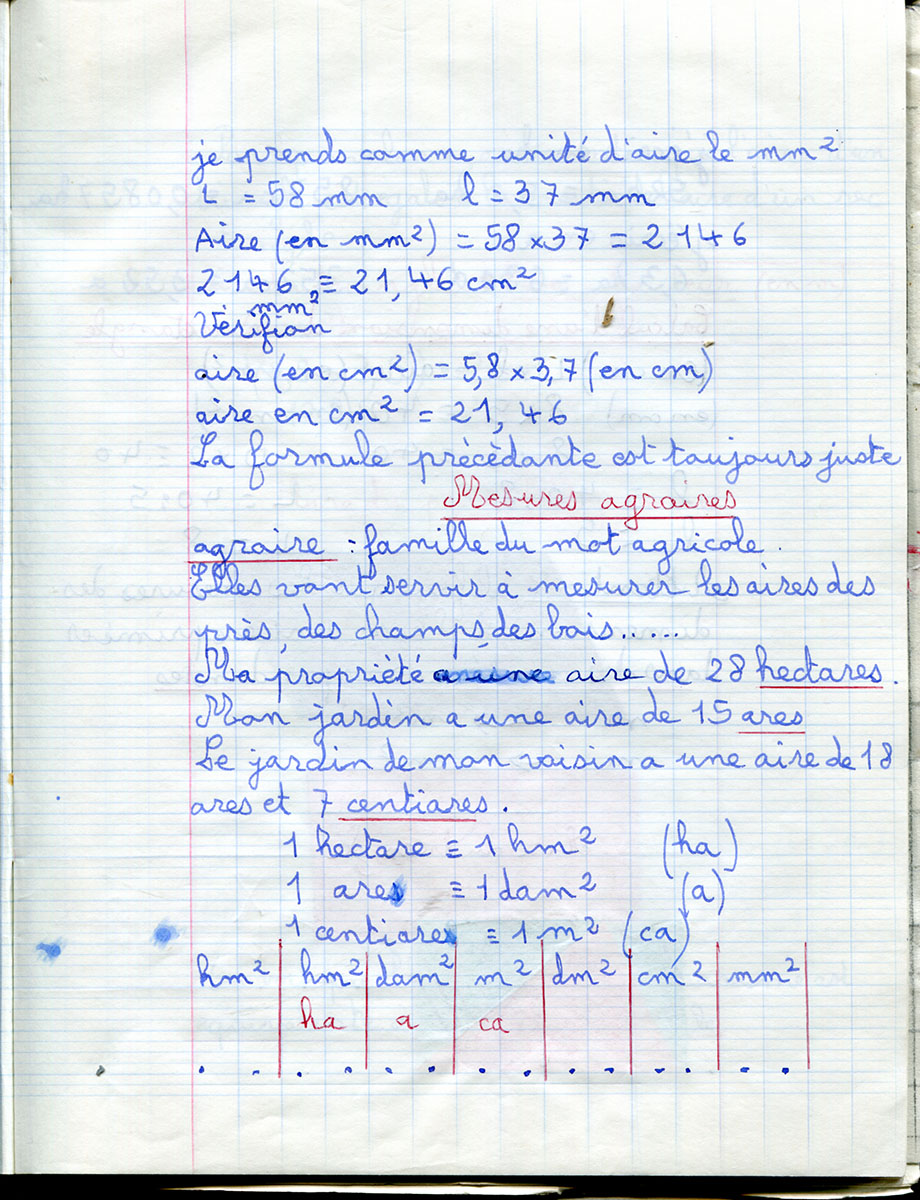 je prends comme unité d'aire le mm²
L = 58 mm l = 37 mm
Aire (en mm²) = 58 × 37 = 2 146
2146 mm² ≡ 21,46 cm²
Vérifion
aire (en cm²) = 5,8 × 3,7 (en cm)
aire en cm² = 21,46
La formule précèdante est toujours juste
Mesures agraires
agraire : famille du mot agricole.
Elles vont servir à mesurer les aires des
près, des champs, des bois......
Ma propriété a une aire de 28 hectares.
Mon jardin a une aire de 15 ares
Le jardin de mon voisin a une aire de 18
ares et 7 centiares.
1 hectare ≡ 1 hm² (ha)
1 ares ≡ 1 dam² (a)
1 centiare ≡ 1 m² (ca)
hm² hm² dam² m² dm² cm² mm²
ha a ca
. . . . . . . . . . . . . .